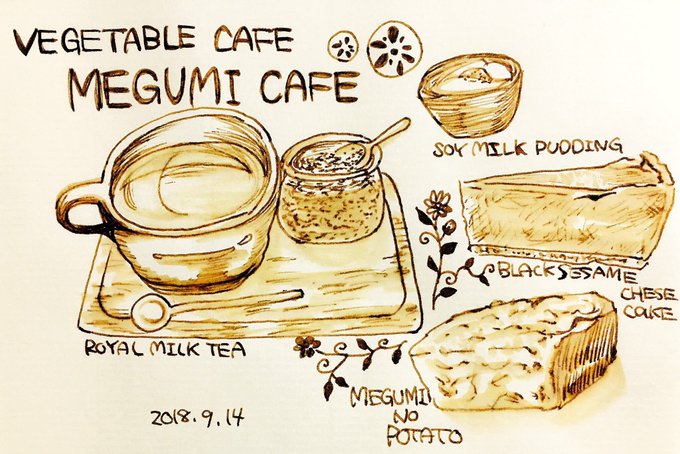 VEGETABLE CAFE
MEGUMI CAFE
SOY MILK PUDDING
BLACK SESAME
CHESE
CAKE
ROYAL MILK TEA
MEGUMI
NO
POTATO
2018.9.14